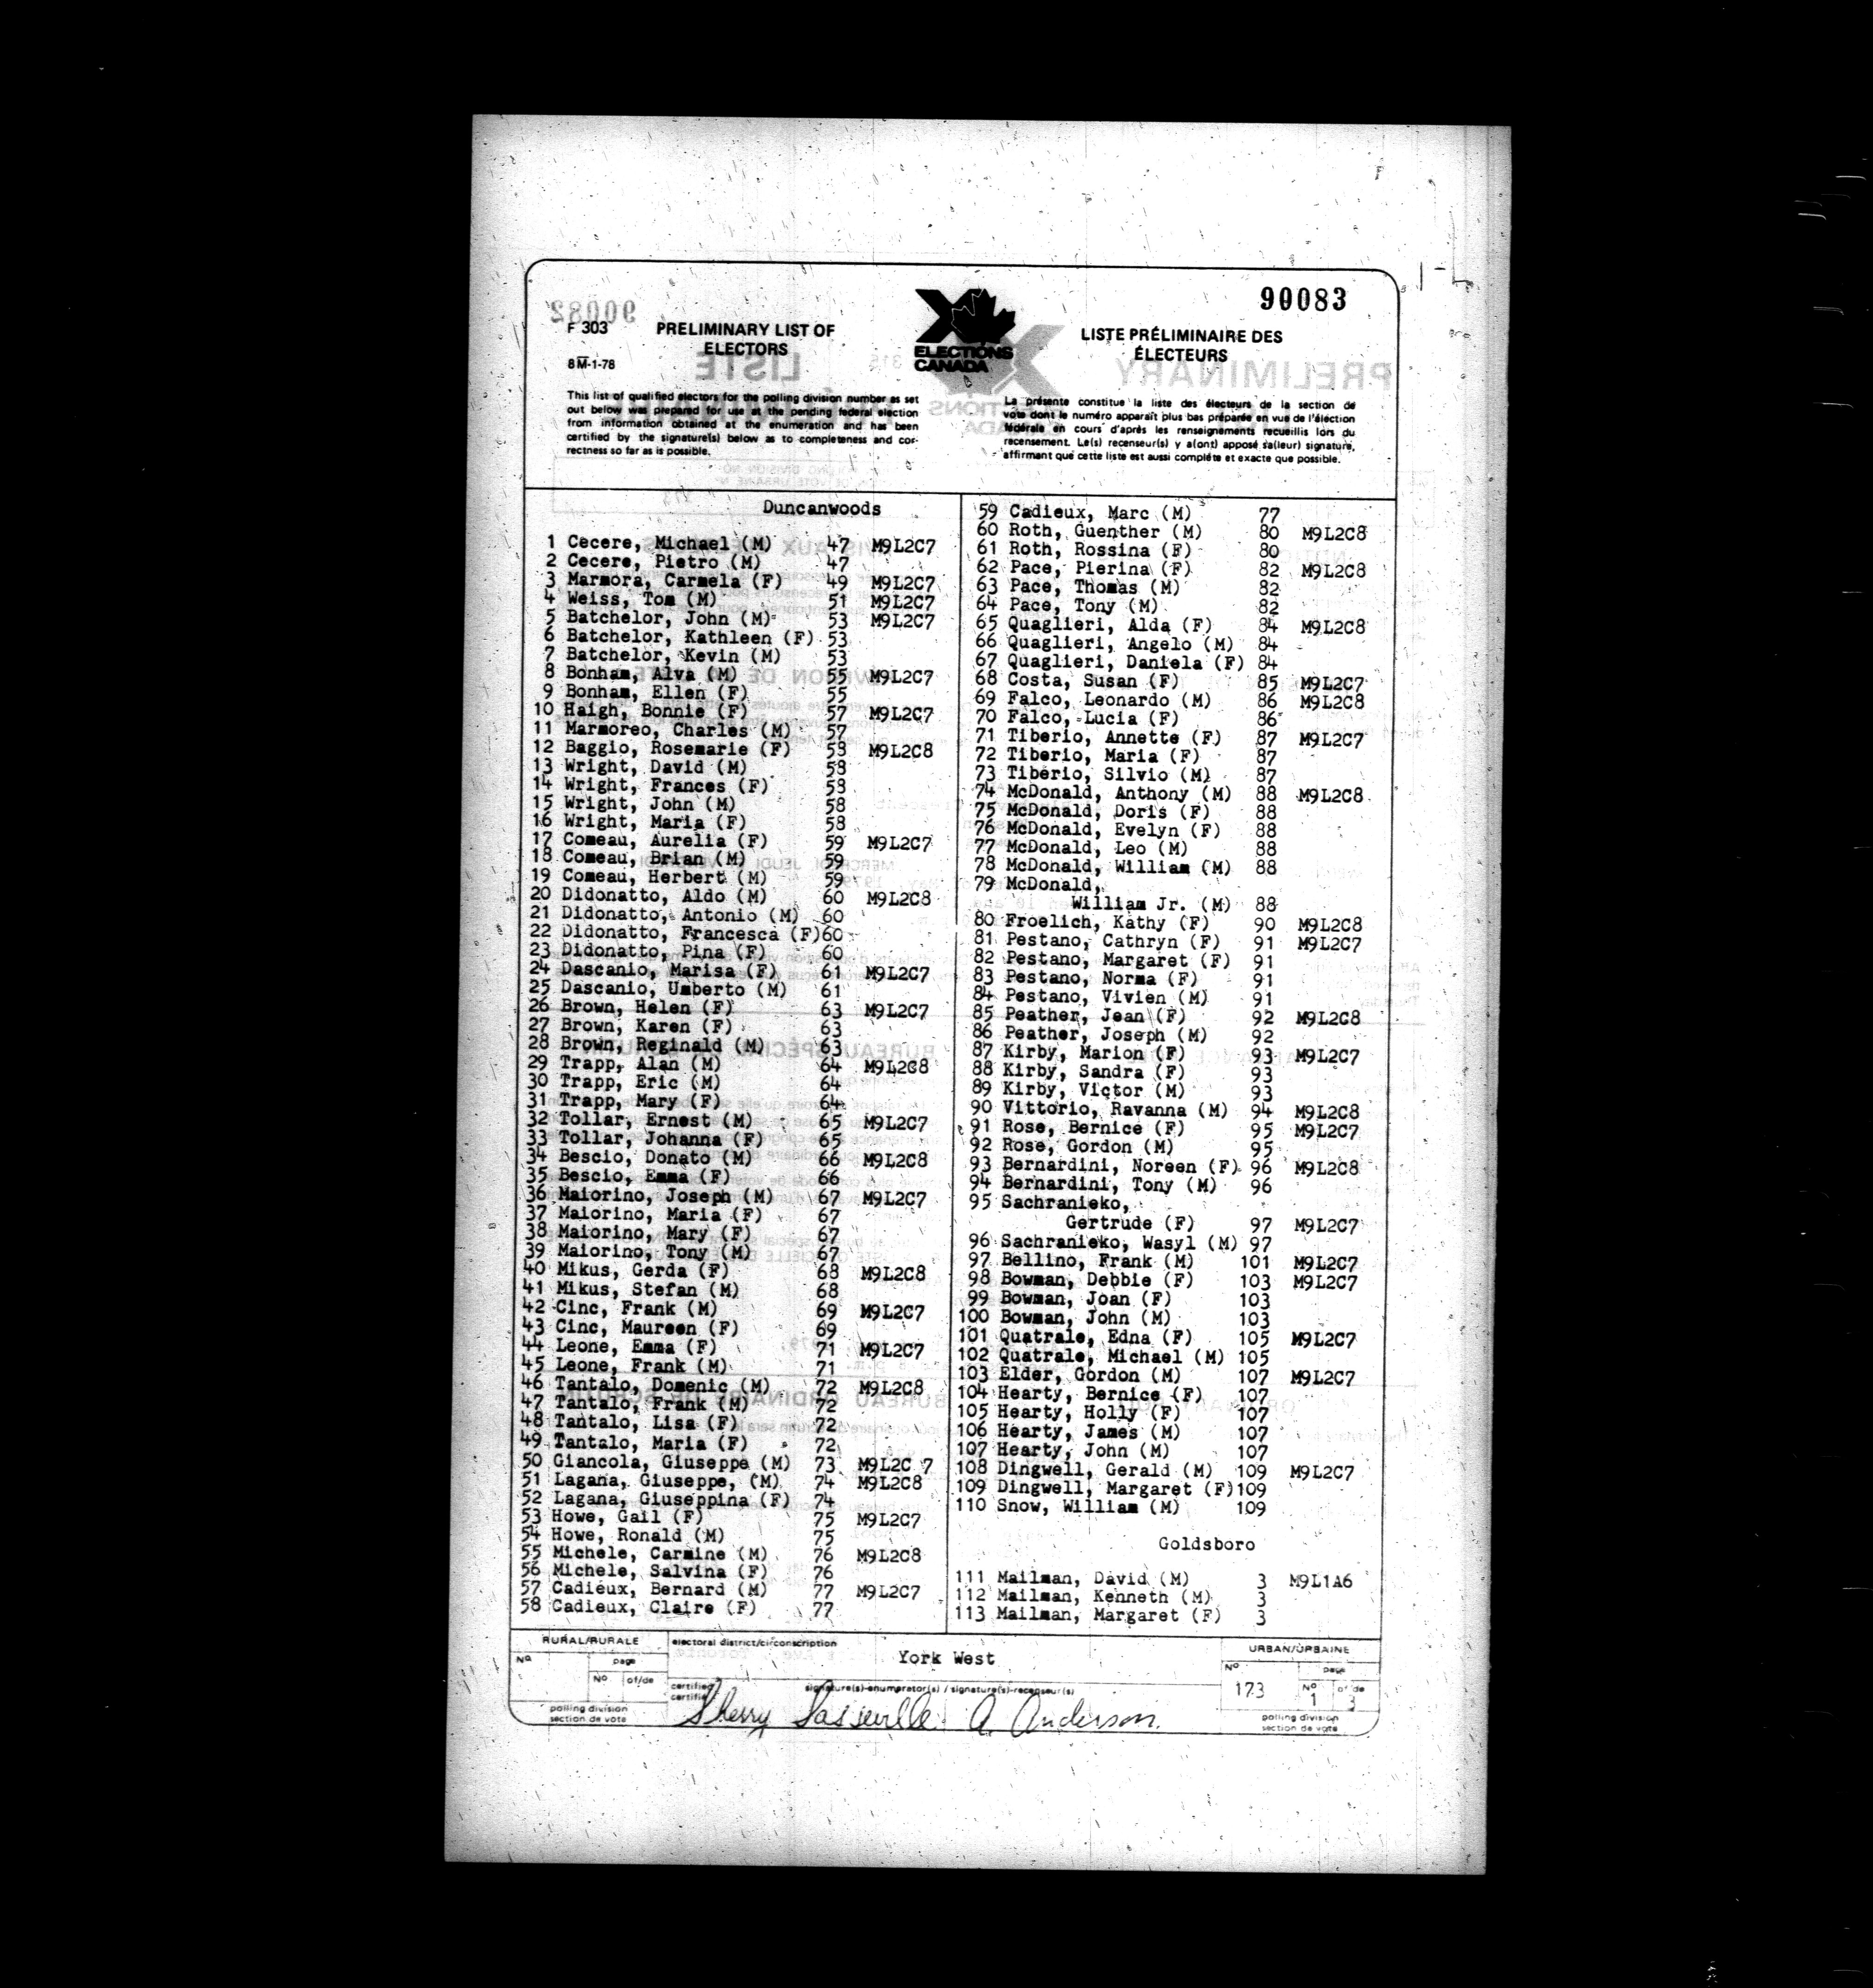 90083
F 303
PRELIMINARY LIST OF
ELECTORS
8M-1-78
ELECTIONS
CANADA
LISTE PRÉLIMINAIRE DES
ÉLECTEURS
This list of qualified electors for the polling division number as set
out below was prepared for use at the pending federal election
from information obtained at the enumeration and has been
certified by the signature(s) below as to completeness and cor-
rectness so far as is possible.
La présente constitue la liste des électeurs de la section de
vote dont le numéro apparaît plus bas préparée en vue de l'élection
fédérale en cours d'après les renseignements recueillis lors du
recensement. Le(s) recenseur(s) y a(ont) apposé sa(leur) signature,
affirmant que cette liste est aussi complète et exacte que possible.
Duncanwoods
1 Cecere, Michael (M) 47 M9L2C7
2 Cecere, Pietro (M) 47
3 Marmora, Carmela (F) 49 M9L2C7
4 Weiss, Tom (M) 51 M9L2C7
5 Batchelor, John (M) 53 M9L2C7
6 Batchelor, Kathleen (F) 53
7 Batchelor, Kevin (M) 53
8 Bonham, Alva (M) 55 M9L2C7
9 Bonham, Ellen (F) 55
10 Haigh, Bonnie (F) 57 M9L2C7
11 Marmoreo, Charles (M) 57
12 Baggio, Rosemarie (F) 58 M9L2C8
13 Wright, David (M) 58
14 Wright, Frances (F) 58
15 Wright, John (M) 58
16 Wright, Maria (F) 58
17 Comeau, Aurelia (F) 59 M9L2C7
18 Comeau, Brian (M) 59
19 Comeau, Herbert (M) 59
20 Didonatto, Aldo (M) 60 M9L2C8
21 Didonatto, Antonio (M) 60
22 Didonatto, Francesca (F)60
23 Didonatto, Pina (F) 60
24 Dascanio, Marisa (F) 61 M9L2C7
25 Dascanio, Umberto (M) 61
26 Brown, Helen (F) 63 M9L2C7
27 Brown, Karen (F) 63
28 Brown, Reginald (M) 63
29 Trapp, Alan (M) 64 M9L2C8
30 Trapp, Eric (M) 64
31 Trapp, Mary (F) 64
32 Tollar, Ernest (M) 65 M9L2C7
33 Tollar, Johanna (F) 65
34 Bescio, Donato (M) 66 M9L2C8
35 Bescio, Emma (F) 66
36 Maiorino, Joseph (M) 67 M9L2C7
37 Maiorino, Maria (F) 67
38 Maiorino, Mary (F) 67
39 Maiorino, Tony (M) 67
40 Mikus, Gerda (F) 68 M9L2C8
41 Mikus, Stefan (M) 68
42 Cinc, Frank (M) 69 M9L2C7
43 Cinc, Maureen (F) 69
44 Leone, Emma (F) 71 M9L2C7
45 Leone, Frank (M) 71
46 Tantalo, Domenic (M) 72 M9L2C8
47 Tantalo, Frank (M) 72
48 Tantalo, Lisa (F) 72
49 Tantalo, Maria (F) 72
50 Giancola, Giuseppe (M) 73 M9L2C 7
51 Lagana, Giuseppe, (M) 74 M9L2C8
52 Lagana, Giuseppina (F) 74
53 Howe, Gail (F) 75 M9L2C7
54 Howe, Ronald (M) 75
55 Michele, Carmine (M) 76 M9L2C8
56 Michele, Salvina (F) 76
57 Cadieux, Bernard (M) 77 M9L2C7
58 Cadieux, Claire (F) 77
59 Cadieux, Marc (M) 77
60 Roth, Guenther (M) 80 M9L2C8
61 Roth, Rossina (F) 80
62 Pace, Pierina (F) 82 M9L2C8
63 Pace, Thomas (M) 82
64 Pace, Tony (M) 82
65 Quaglieri, Alda (F) 84 M9L2C8
66 Quaglieri, Angelo (M) 84
67 Quaglieri, Daniela (F) 84
68 Costa, Susan (F) 85 M9L2C7
69 Falco, Leonardo (M) 86 M9L2C8
70 Falco, Lucia (F) 86
71 Tiberio, Annette (F) 87 M9L2C7
72 Tiberio, Maria (F) 87
73 Tiberio, Silvio (M) 87
74 McDonald, Anthony (M) 88 M9L2C8
75 McDonald, Doris (F) 88
76 McDonald, Evelyn (F) 88
77 McDonald, Leo (M) 88
78 McDonald, William (M) 88
79 McDonald,
William Jr. (M) 88
80 Froelich, Kathy (F) 90 M9L2C8
81 Pestano, Cathryn (F) 91 M9L2C7
82 Pestano, Margaret (F) 91
83 Pestano, Norma (F) 91
84 Pestano, Vivien (M) 91
85 Peather, Jean (F) 92 M9L2C8
86 Peather, Joseph (M) 92
87 Kirby, Marion (F) 93 M9L2C7
88 Kirby, Sandra (F) 93
89 Kirby, Victor (M) 93
90 Vittorio, Ravanna (M) 94 M9L2C8
91 Rose, Bernice (F) 95 M9L2C7
92 Rose, Gordon (M) 95
93 Bernardini, Noreen (F) 96 M9L2C8
94 Bernardini, Tony (M) 96
95 Sachranieko,
Gertrude (F) 97 M9L2C7
96 Sachranieko, Wasyl (M) 97
97 Bellino, Frank (M) 101 M9L2C7
98 Bowman, Debbie (F) 103 M9L2C7
99 Bowman, Joan (F) 103
100 Bowman, John (M) 103
101 Quatrale, Edna (F) 105 M9L2C7
102 Quatrale, Michael (M) 105
103 Elder, Gordon (M) 107 M9L2C7
104 Hearty, Bernice (F) 107
105 Hearty, Holly (F) 107
106 Hearty, James (M) 107
107 Hearty, John (M) 107
108 Dingwell, Gerald (M) 109 M9L2C7
109 Dingwell, Margaret (F)109
110 Snow, William (M) 109
Goldsboro
111 Mailman, David (M) 3 M9L1A6
112 Mailman, Kenneth (M) 3
113 Mailman, Margaret (F) 3
RURAL/RURALE
No page
No of/de
polling division
section de vote
electoral district/circonscription
York West
certified
certifié
signature(s)-enumerator(s) / signature(s)-recenseur(s)
Sherry Lasseville A Anderson
URBAN/URBAINE
No page
173 No 1 of de 3
polling division
section de vote